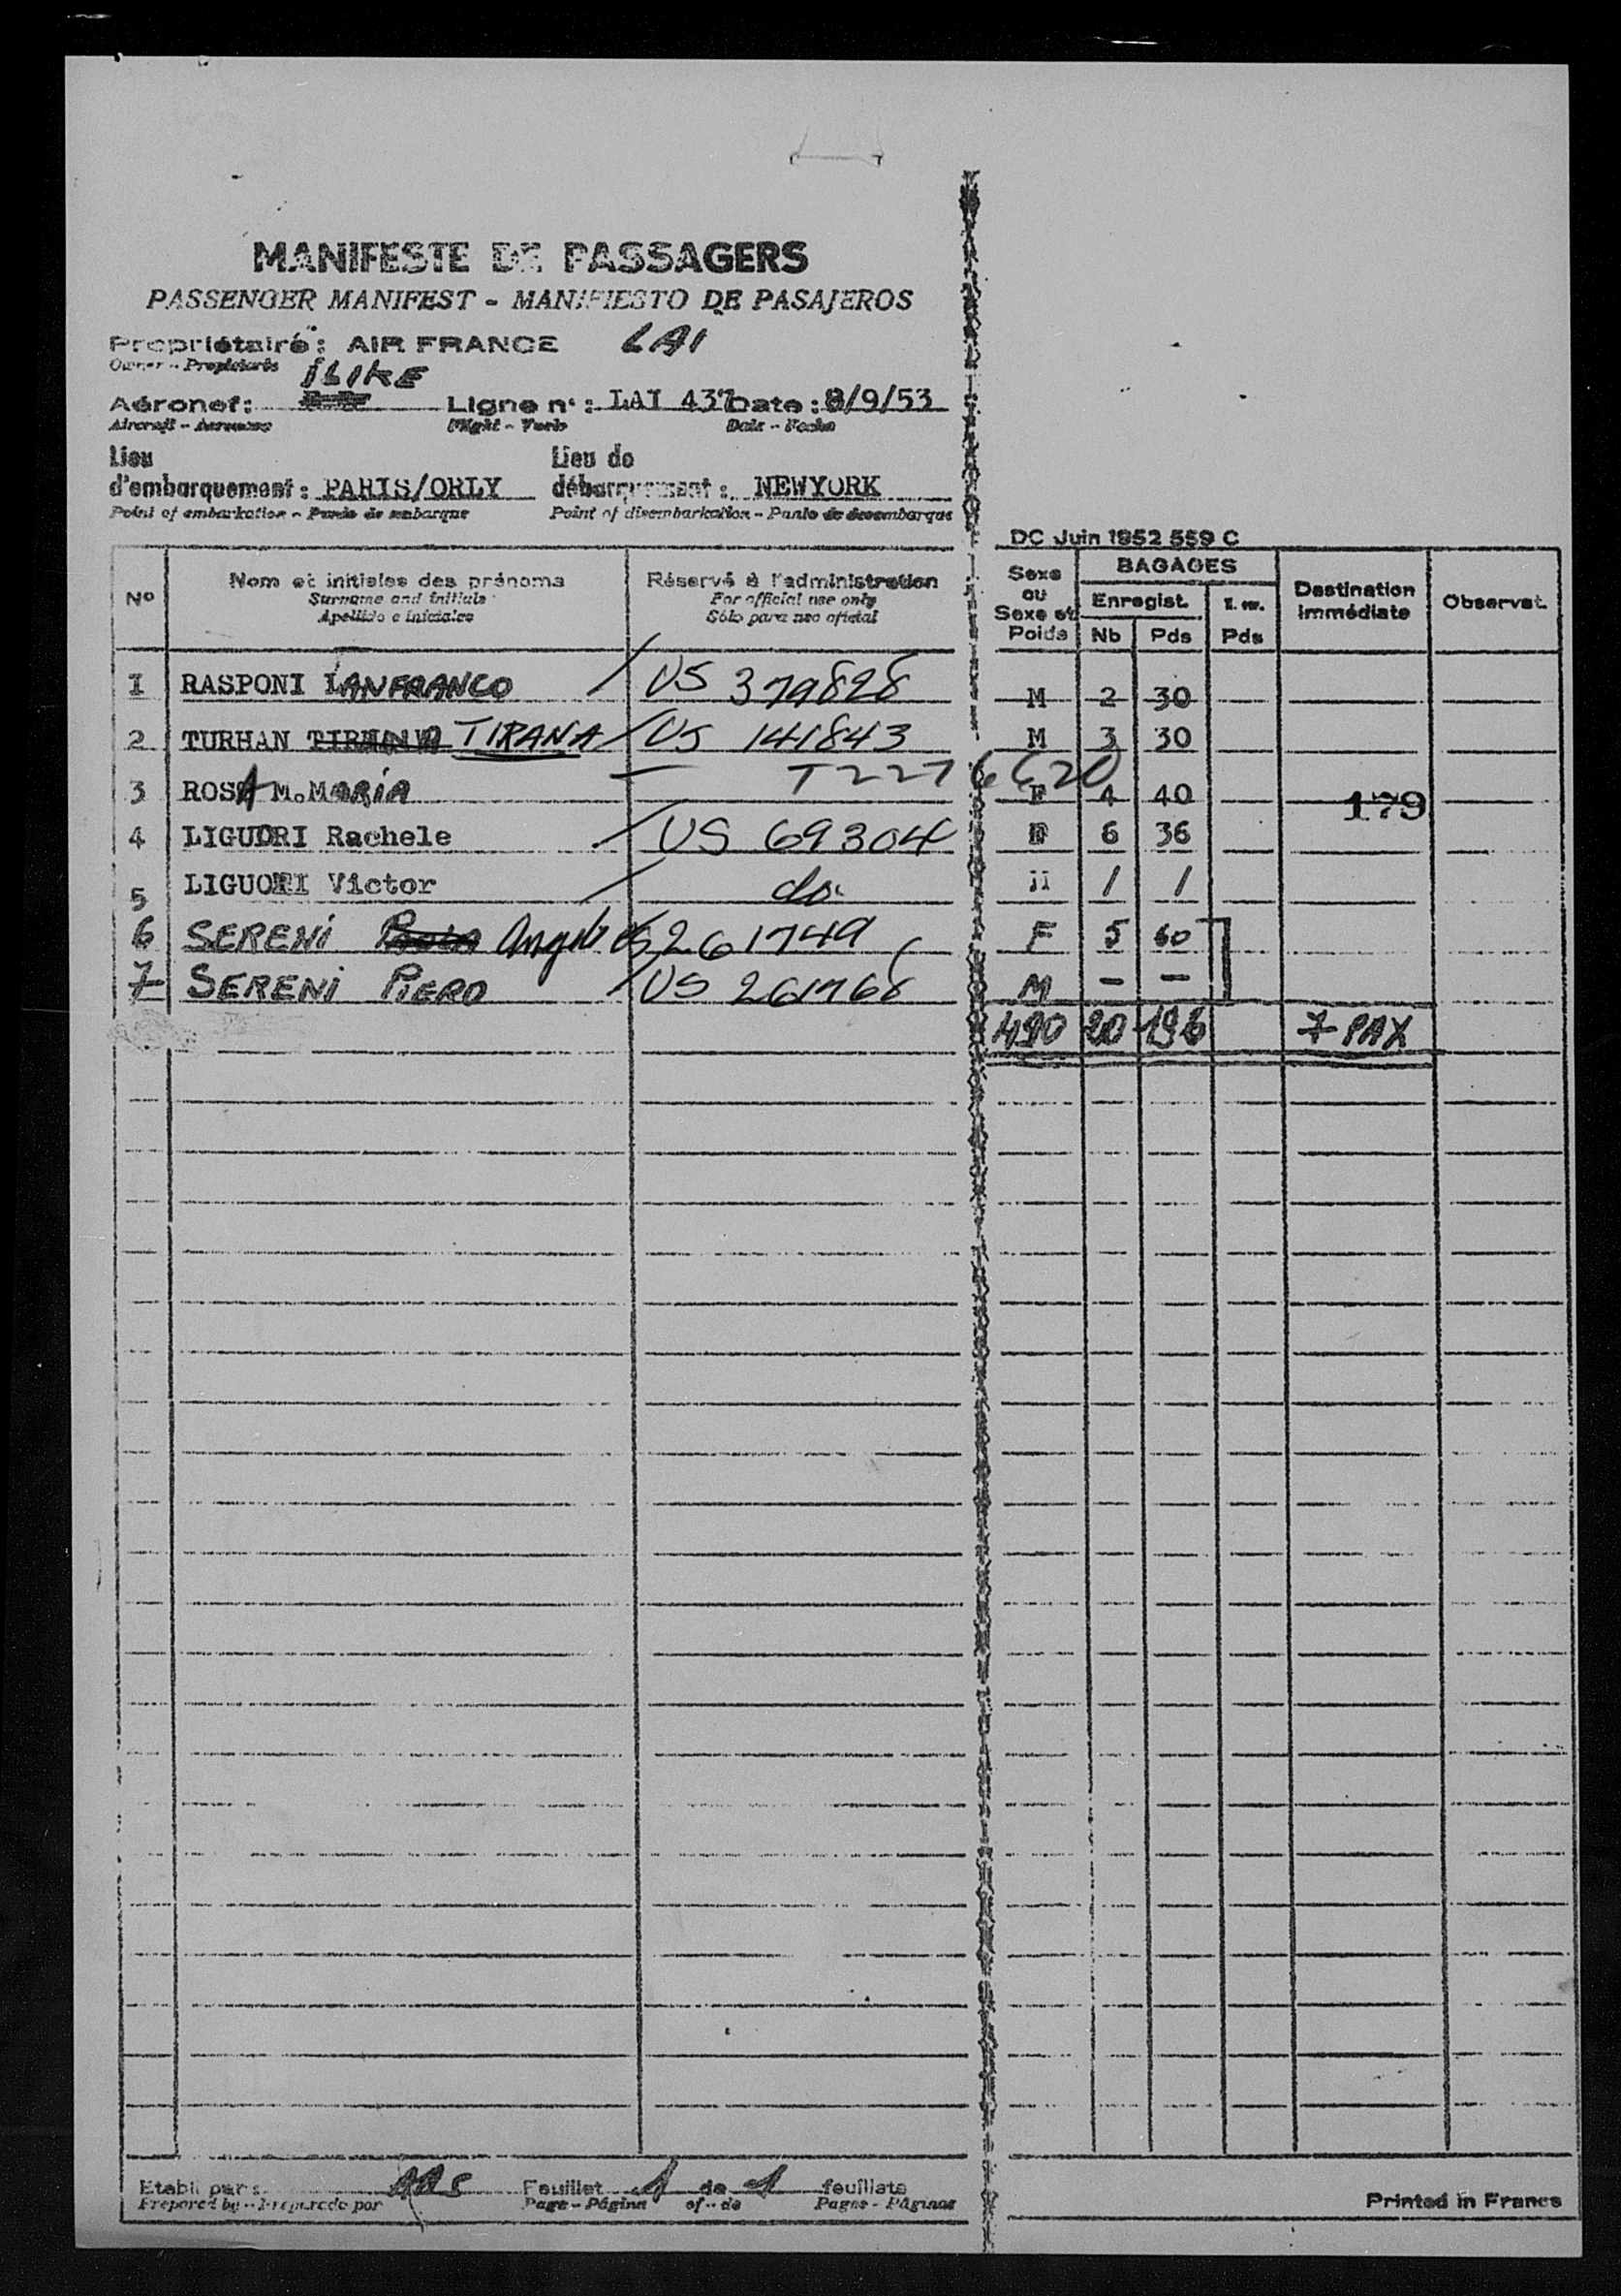 MANIFESTE DE PASSAGERS
PASSENGER MANIFEST - MANIFIESTO DE PASAJEROS
Propriétaire: AIR FRANCE LAI
Owner - Propietario
ILIKE
Aéronef: Ligne n°: LAI 437 Date: 8/9/53
Aircraft - Aeronave Flight - Vuelo Date - Fecha
Lieu Lieu de
d'embarquement: PARIS/ORLY débarquement: NEWYORK
Point of embarkation - Punto de embarque Point of disembarkation - Punto de desembarque
DC Juin 1952 559 C
N° Nom et initiales des prénoms Réservé à l'administration Sexe ou Sexe et Poids BAGAGES Destination immédiate Observat.
Surname and initials For official use only Enregist.
Apellido e iniciales Sólo para uso oficial Nb Pds Pds
1 RASPONI LANFRANCO US 379828 M 2 30
2 TURHAN TIRANA US 141843 M 3 30
3 ROSA M. MARIA T227 6620 F 4 40 179
4 LIGUORI Rachele US 69304 F 6 36
5 LIGUORI Victor do. 1 1
6 SERENI Angelo US 261749 F 5 60
7 SERENI PIERO US 261768 M - -
490 20 196 7 PAX
Etabli par: Feuillet 1 de 1 feuillets
Prepared by - Preparado por Page - Página of - de Pages - Páginas
Printed in France